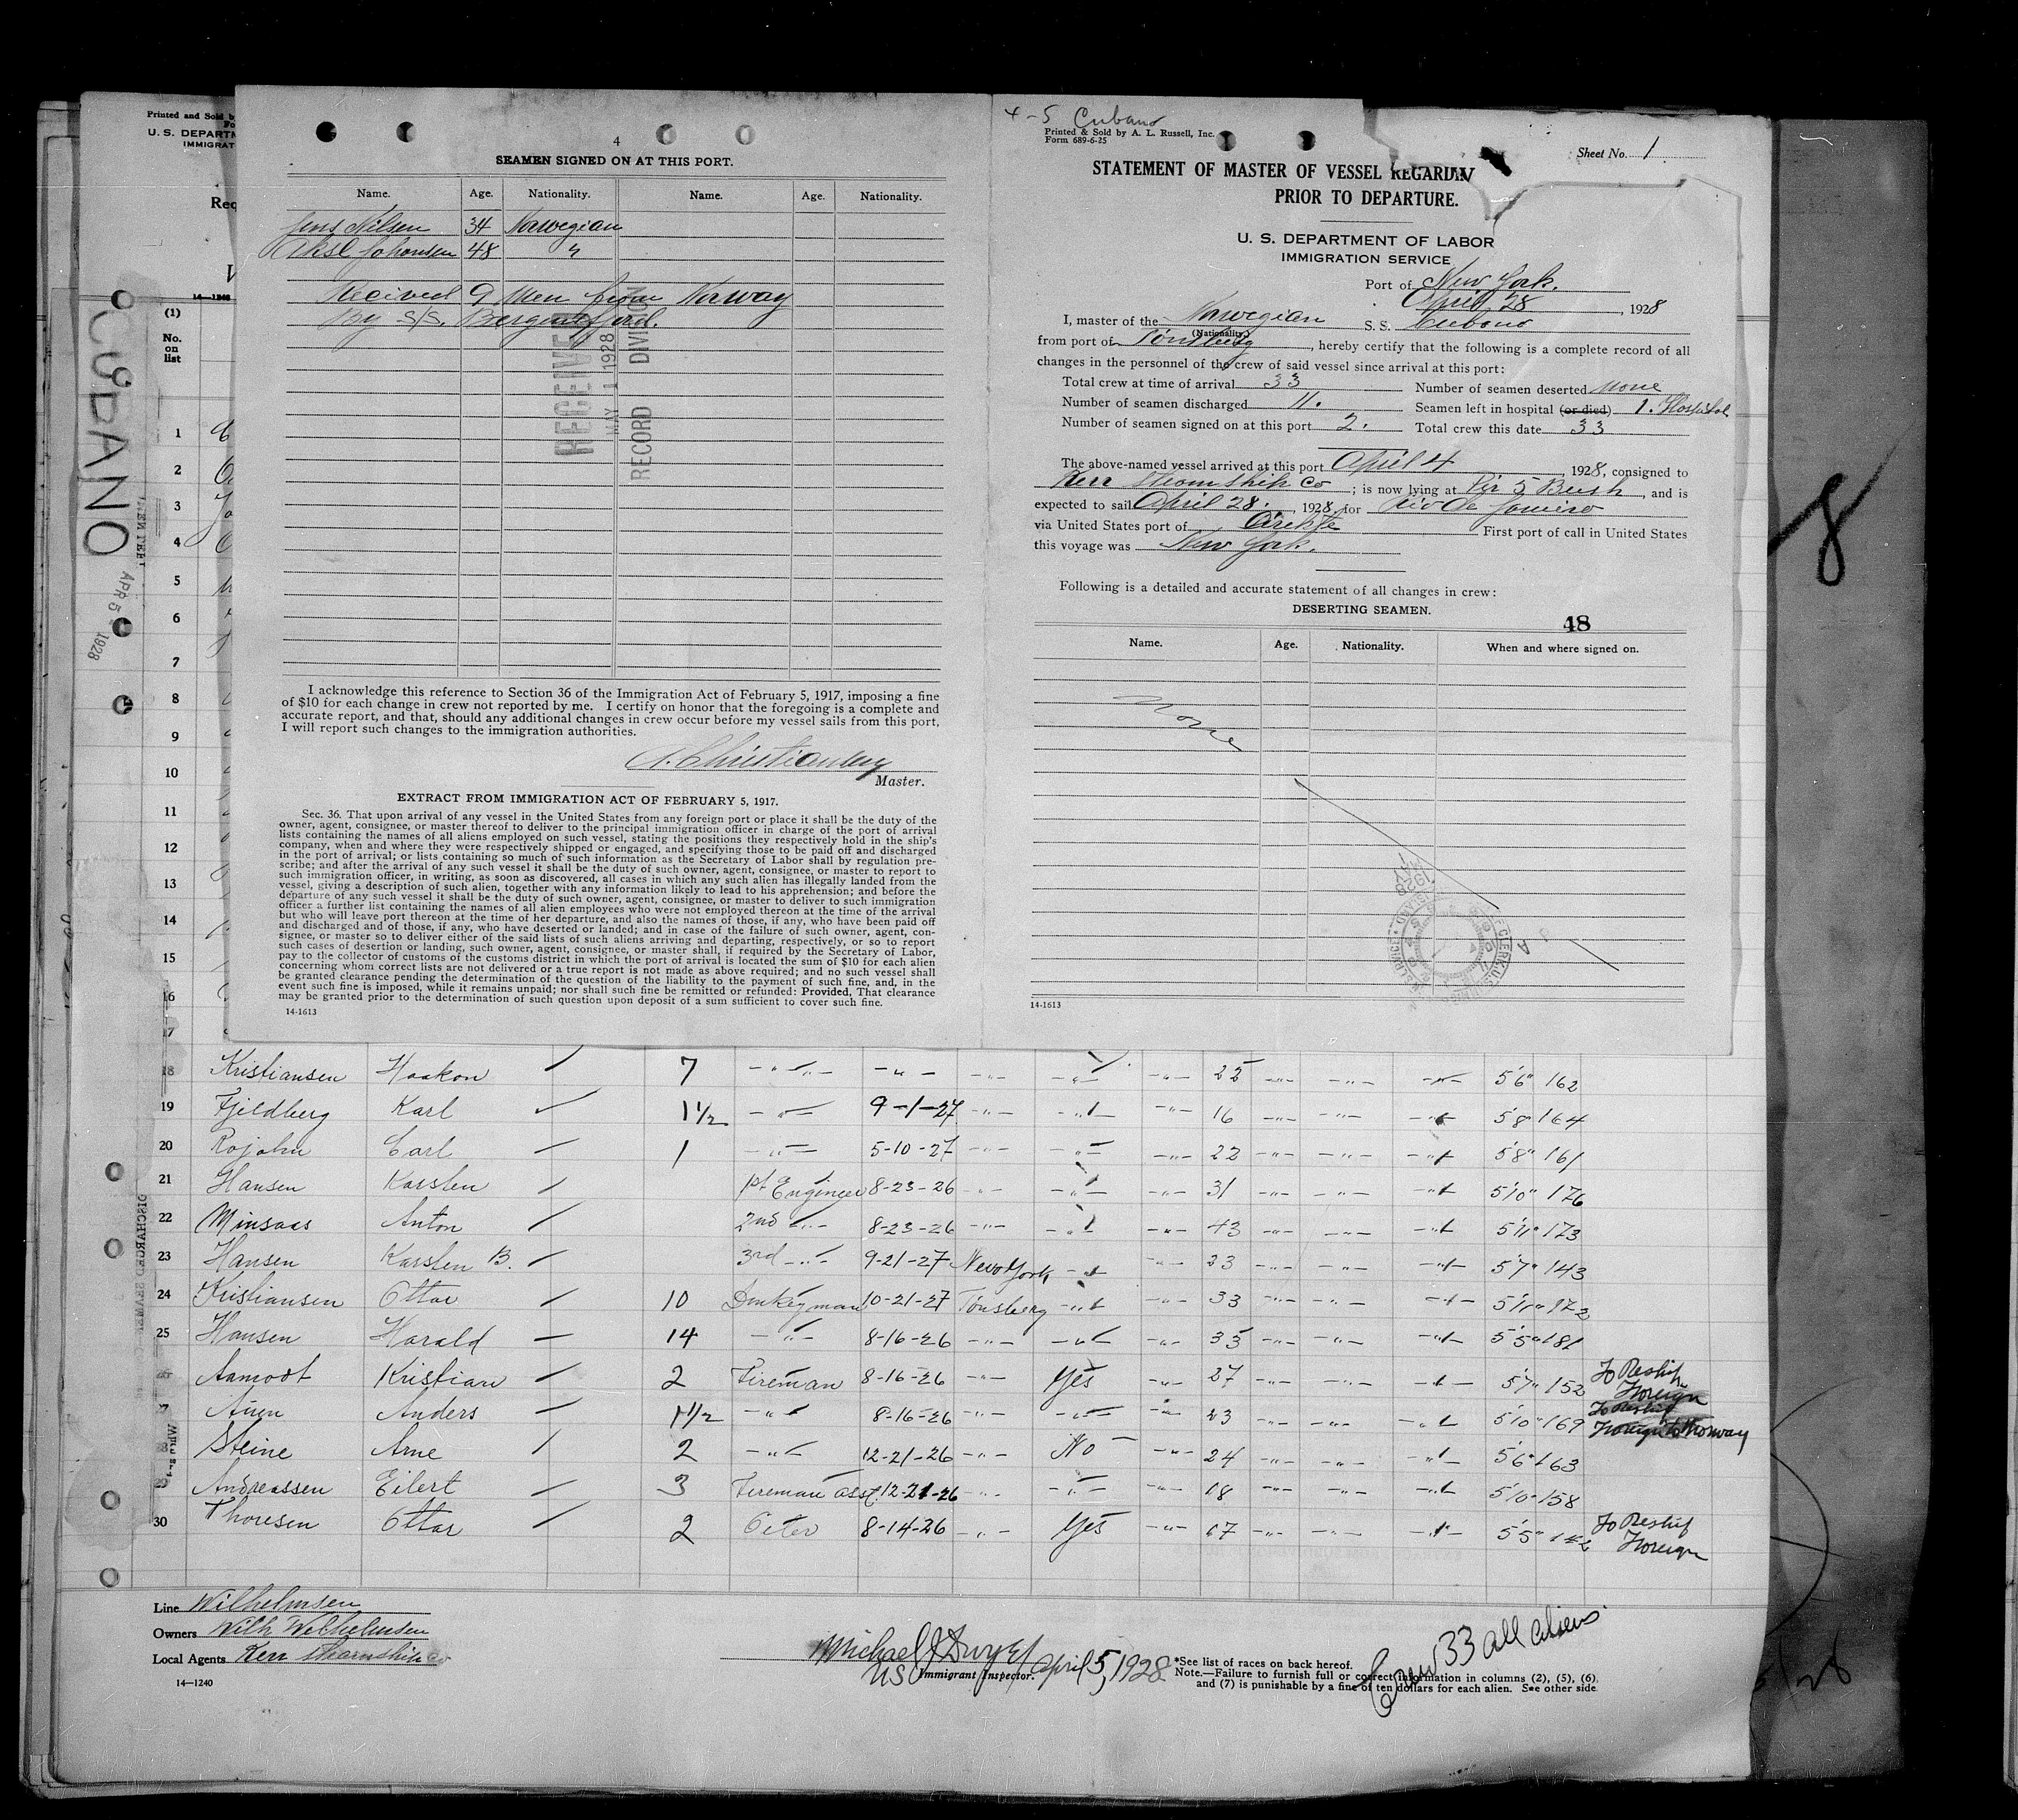 Printed and Sold by
U. S. DEPARTM
IMMIGRAT
Req
14—1240
(1)
No.
on
list
CUBANO
APR 5 1928
4
SEAMEN SIGNED ON AT THIS PORT.
Name. Age. Nationality. Name. Age. Nationality.
Jens Nilsen 34 Norwegian
Aksel Johansen 48 "
Recived 9 Men from Norway
By S/S. Bergensfjord.
RECEIVED
MAY 1 1928
RECORD DIVISION
I acknowledge this reference to Section 36 of the Immigration Act of February 5, 1917, imposing a fine
of $10 for each change in crew not reported by me. I certify on honor that the foregoing is a complete and
accurate report, and that, should any additional changes in crew occur before my vessel sails from this port,
I will report such changes to the immigration authorities.
Master.
EXTRACT FROM IMMIGRATION ACT OF FEBRUARY 5, 1917.
Sec. 36. That upon arrival of any vessel in the United States from any foreign port or place it shall be the duty of the
owner, agent, consignee, or master thereof to deliver to the principal immigration officer in charge of the port of arrival
lists containing the names of all aliens employed on such vessel, stating the positions they respectively hold in the ship's
company, when and where they were respectively shipped or engaged, and specifying those to be paid off and discharged
in the port of arrival; or lists containing so much of such information as the Secretary of Labor shall by regulation pre-
scribe; and after the arrival of any such vessel it shall be the duty of such owner, agent, consignee, or master to report to
such immigration officer, in writing, as soon as discovered, all cases in which any such alien has illegally landed from the
vessel, giving a description of such alien, together with any information likely to lead to his apprehension; and before the
departure of any such vessel it shall be the duty of such owner, agent, consignee, or master to deliver to such immigration
officer a further list containing the names of all alien employees who were not employed thereon at the time of the arrival
but who will leave port thereon at the time of her departure, and also the names of those, if any, who have been paid off
and discharged and of those, if any, who have deserted or landed; and in case of the failure of such owner, agent, con-
signee, or master so to deliver either of the said lists of such aliens arriving and departing, respectively, or so to report
such cases of desertion or landing, such owner, agent, consignee, or master shall, if required by the Secretary of Labor,
pay to the collector of customs of the customs district in which the port of arrival is located the sum of $10 for each alien
concerning whom correct lists are not delivered or a true report is not made as above required; and no such vessel shall
be granted clearance pending the determination of the question of the liability to the payment of such fine, and, in the
event such fine is imposed, while it remains unpaid; nor shall such fine be remitted or refunded: Provided, That clearance
may be granted prior to the determination of such question upon deposit of a sum sufficient to cover such fine.
14-1613
4-5 Cubano
Printed & Sold by A. L. Russell, Inc.
Form 689-6-25
Sheet No. 1
STATEMENT OF MASTER OF VESSEL REGARDIN
PRIOR TO DEPARTURE.
U. S. DEPARTMENT OF LABOR
IMMIGRATION SERVICE
Port of New York.
April 28, 1928
I, master of the Norwegian S. S. Cubano
(Nationality.)
from port of Tönsberg, hereby certify that the following is a complete record of all
changes in the personnel of the crew of said vessel since arrival at this port:
Total crew at time of arrival 33 Number of seamen deserted None
Number of seamen discharged 11. Seamen left in hospital (or died) 1. Hospital
Number of seamen signed on at this port 2. Total crew this date 33
The above-named vessel arrived at this port April 4, 1928, consigned to
Kerr Steamship Co; is now lying at Pir 5 Bush, and is
expected to sail April 28., 1928, for Rio de Janeiro
via United States port of Direkte First port of call in United States
this voyage was New York.
Following is a detailed and accurate statement of all changes in crew:
DESERTING SEAMEN.
48
Name. Age. Nationality. When and where signed on.
None
14-1613
8
1
2
3
4
5
6
7
8
9
10
11
12
13
14
15
16
17
18 Kristiansen Haakon 7 -"- -"- -"- -"- -"- 22 -"- -"- -"- 5'6" 162
19 Fjeldberg Karl 1½ -"- 9-1-27 -"- -"- -"- 16 -"- -"- -"- 5'8 164
20 Rojahn Carl 1 -"- 5-10-27 -"- -"- -"- 22 -"- -"- -"- 5'8" 161
21 Hansen Karsten 1st Engineer 8-23-26 -"- -"- -"- 31 -"- -"- -"- 5'10" 176
22 Minsaas Anton 2nd -"- 8-23-26 -"- -"- -"- 43 -"- -"- -"- 5'11" 173
23 Hansen Karsten B. 3rd -"- 9-21-27 New York -"- -"- 23 -"- -"- -"- 5'7" 143
24 Kristiansen Ottar 10 Donkeyman 10-21-27 Tönsberg -"- -"- 33 -"- -"- -"- 5'11" 172
25 Hansen Harald 14 -"- 8-16-26 -"- -"- -"- 33 -"- -"- -"- 5'5" 181
26 Aamodt Kristian 2 Fireman 8-16-26 -"- Yes -"- 27 -"- -"- -"- 5'7" 152 To Reship Foreign
27 Auen Anders 1½ -"- 8-16-26 -"- -"- -"- 23 -"- -"- -"- 5'10" 169 To Reship Foreign to Norway
28 Steine Arne 2 -"- 12-21-26 -"- No -"- 24 -"- -"- -"- 5'6" 163
29 Andreassen Eilert 3 Fireman asst. 12-21-26 -"- -"- -"- 18 -"- -"- -"- 5'10" 158
30 Thoresen Ottar 2 Oiler 8-14-26 -"- Yes -"- 17 -"- -"- -"- 5'5" 142 To Reship Foreign
Line Wilhelmsen
Owners Wilh Wilhelmsen
Local Agents Kerr Steamship Co
14—1240
Michael J Dwyer
US Immigrant Inspector. April 5, 1928
*See list of races on back hereof.
Note.—Failure to furnish full or correct information in columns (2), (5), (6),
and (7) is punishable by a fine of ten dollars for each alien. See other side
Crew 33 all aliens